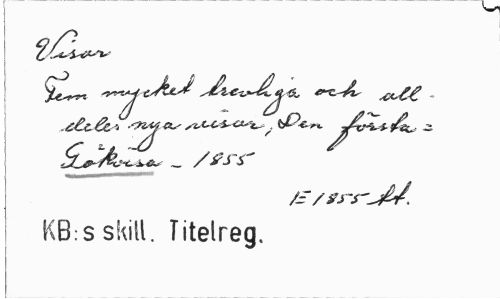 Visor
Fem mycket trevliga och all-
deles nya visor, Den första =
Gökvisa - 1855
E 1855 tt.
KB:s skill. Titelreg.